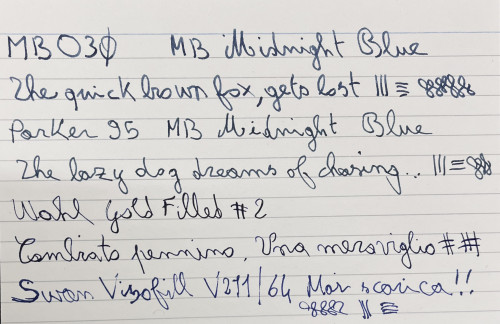 MB 03∅ MB Midnight Blue
The quick brown fox, gets lost |||≡
Parker 95 MB Midnight Blue
The lazy dog dreams of chasing... |||≡
Wahl Gold Filled #2
Cambiato pennino. Una meraviglia ##
Swan Visofill V211/64 Mai scarica!!
|||≡